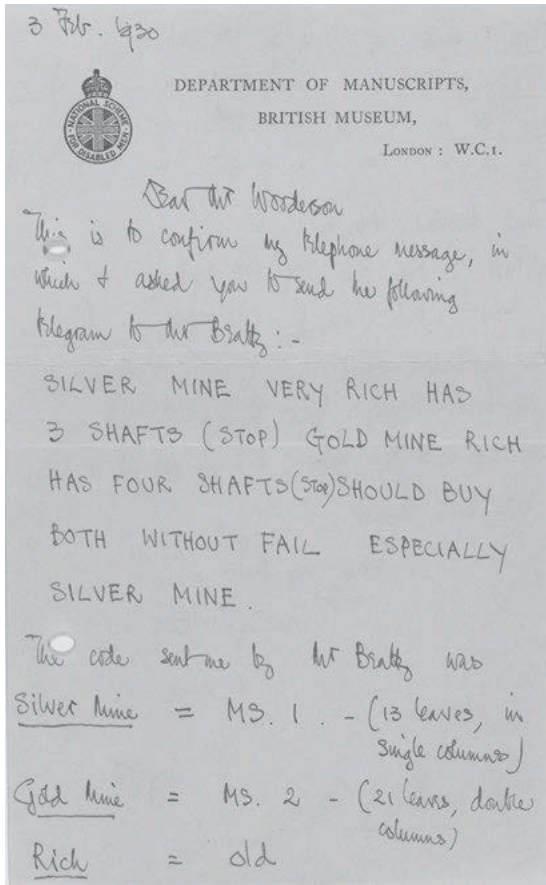 3 Feb. 1930
NATIONAL SCHEME FOR DISABLED MEN
DEPARTMENT OF MANUSCRIPTS,
BRITISH MUSEUM,
LONDON : W.C.1.
Dear Mr Wooderson
This is to confirm my telephone message, in
which I asked you to send the following
telegram to Mr Beatty :-
SILVER MINE VERY RICH HAS
3 SHAFTS (STOP) GOLD MINE RICH
HAS FOUR SHAFTS (STOP) SHOULD BUY
BOTH WITHOUT FAIL ESPECIALLY
SILVER MINE.
The code sent me by Mr Beatty was
Silver Mine = MS. 1. - (13 leaves, in
single columns)
Gold Mine = MS. 2 - (21 leaves, double
columns)
Rich = old